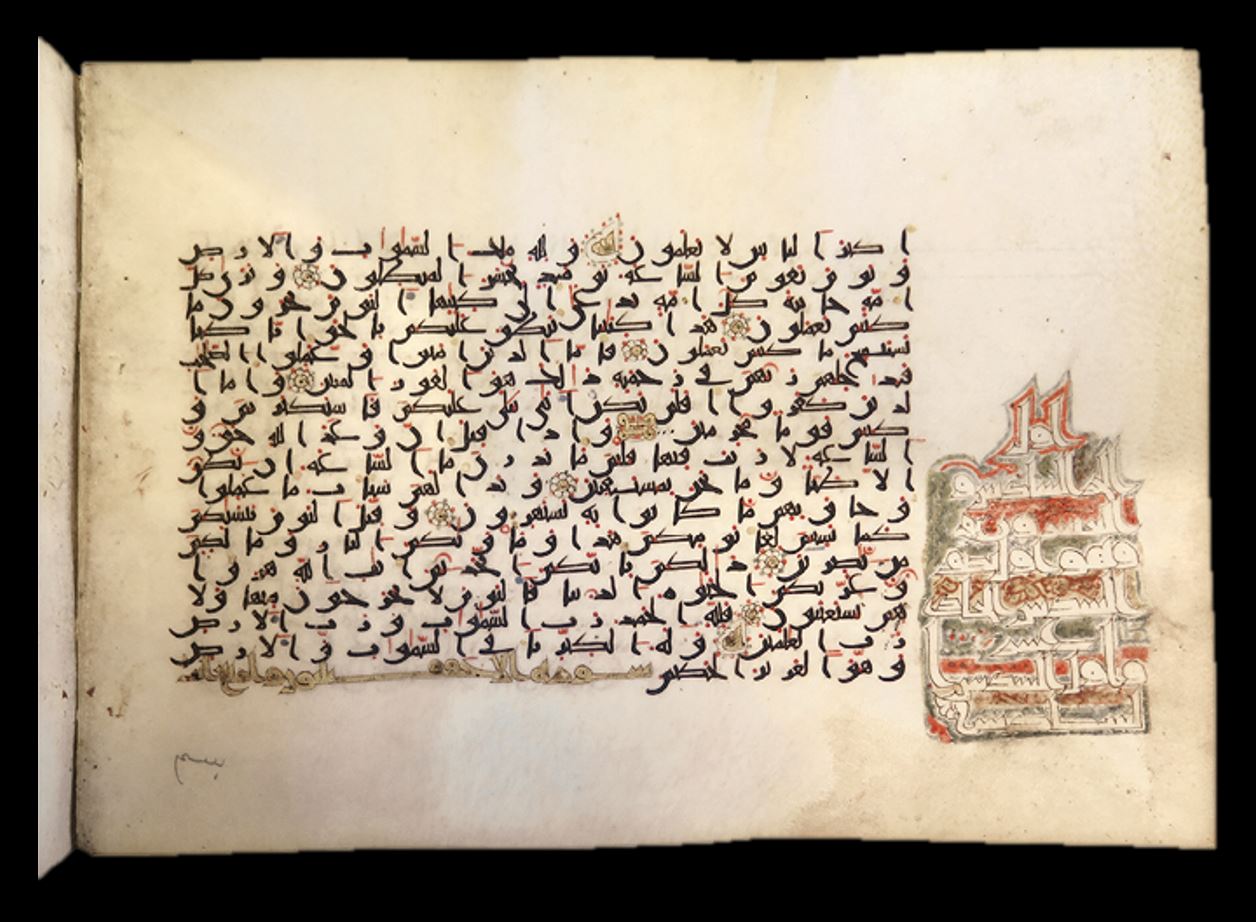 ا كثر ا لنا س لا يعلمو ن و لله ملك ا لسموا ت و ا لا ر ض
و يو م تقو م ا لسا عة يو مئذ يخسر ا لمبطلو ن و تر ى كل
ا مة جا ثية كل ا مة تد عى ا لى كتبها ا ليو م تجز و ن ما
كنتم تعملو ن هذا كتبنا ينطق عليكم با لحق ا نا كنا
نستنسخ ما كنتم تعملو ن فا ما ا لذ ين ا منوا و عملوا ا لصلحت
فيد خلهم ر بهم في ر حمته ذ لك هو ا لفو ز ا لمبين و ا ما ا
لذ ين كفر و ا ا فلم تكن ا يتي تتلى عليكم فا ستكبر تم و
كنتم قو ما مجر مين و ا ذ ا قيل ا ن و عد ا لله حق و
ا لسا عة لا ر يب فيها قلتم ما ند ر ي ما ا لسا عة ا ن نظن
ا لا ظنا و ما نحن بمستيقنين و بد ا لهم سيا ت ما عملوا
و حا ق بهم ما كا نوا به يستهز و ن و قيل ا ليو م ننسيكم
كما نسيتم لقا يو مكم هذا و ما و يكم ا لنا ر و ما لكم
من نصر ين ذ لكم با نكم ا تخذ تم ا يت ا لله هز و ا
و غر تكم ا لحيو ة ا لد نيا فا ليو م لا يخر جو ن منها و لا
هم يستعتبو ن فلله ا لحمد ر ب ا لسموا ت و ر ب ا لا ر ض
ر ب ا لعلمين و له ا لكبر يا في ا لسموا ت و ا لا ر ض
و هو ا لعز يز ا لحكيم سورة الاحقاف
اول
السادس و
العشرون
وهو اول